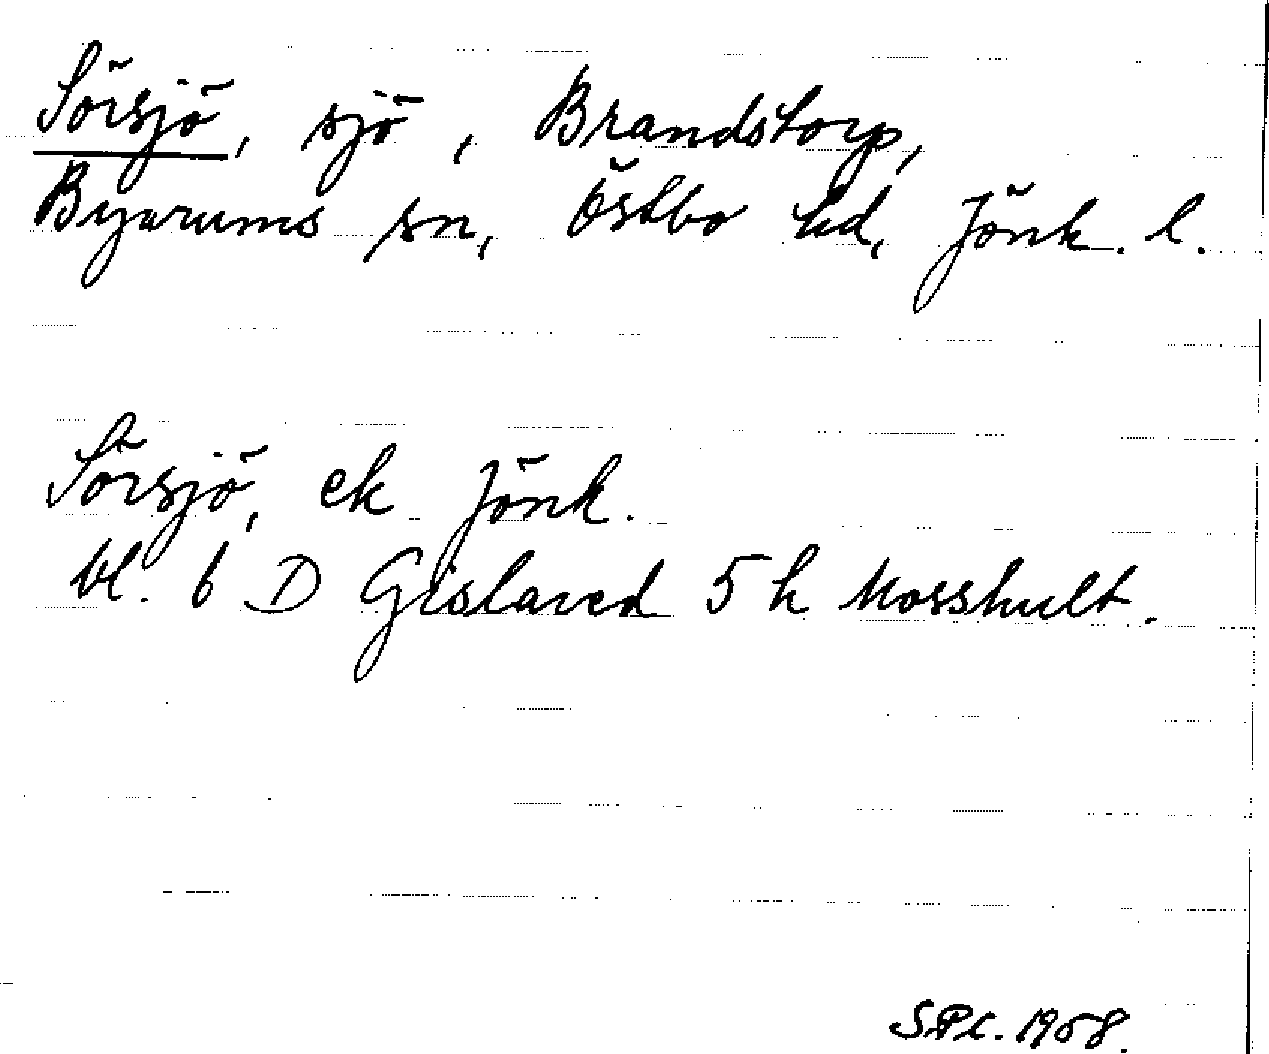 Sörsjö, sjö, Brandstorp,
Byarums sn, Östbo hd, Jönk. l.
Sörsjö, ek Jönk.
bl. 6 D Gislaved 5 h Mosshult.
S.P.L. 1958.